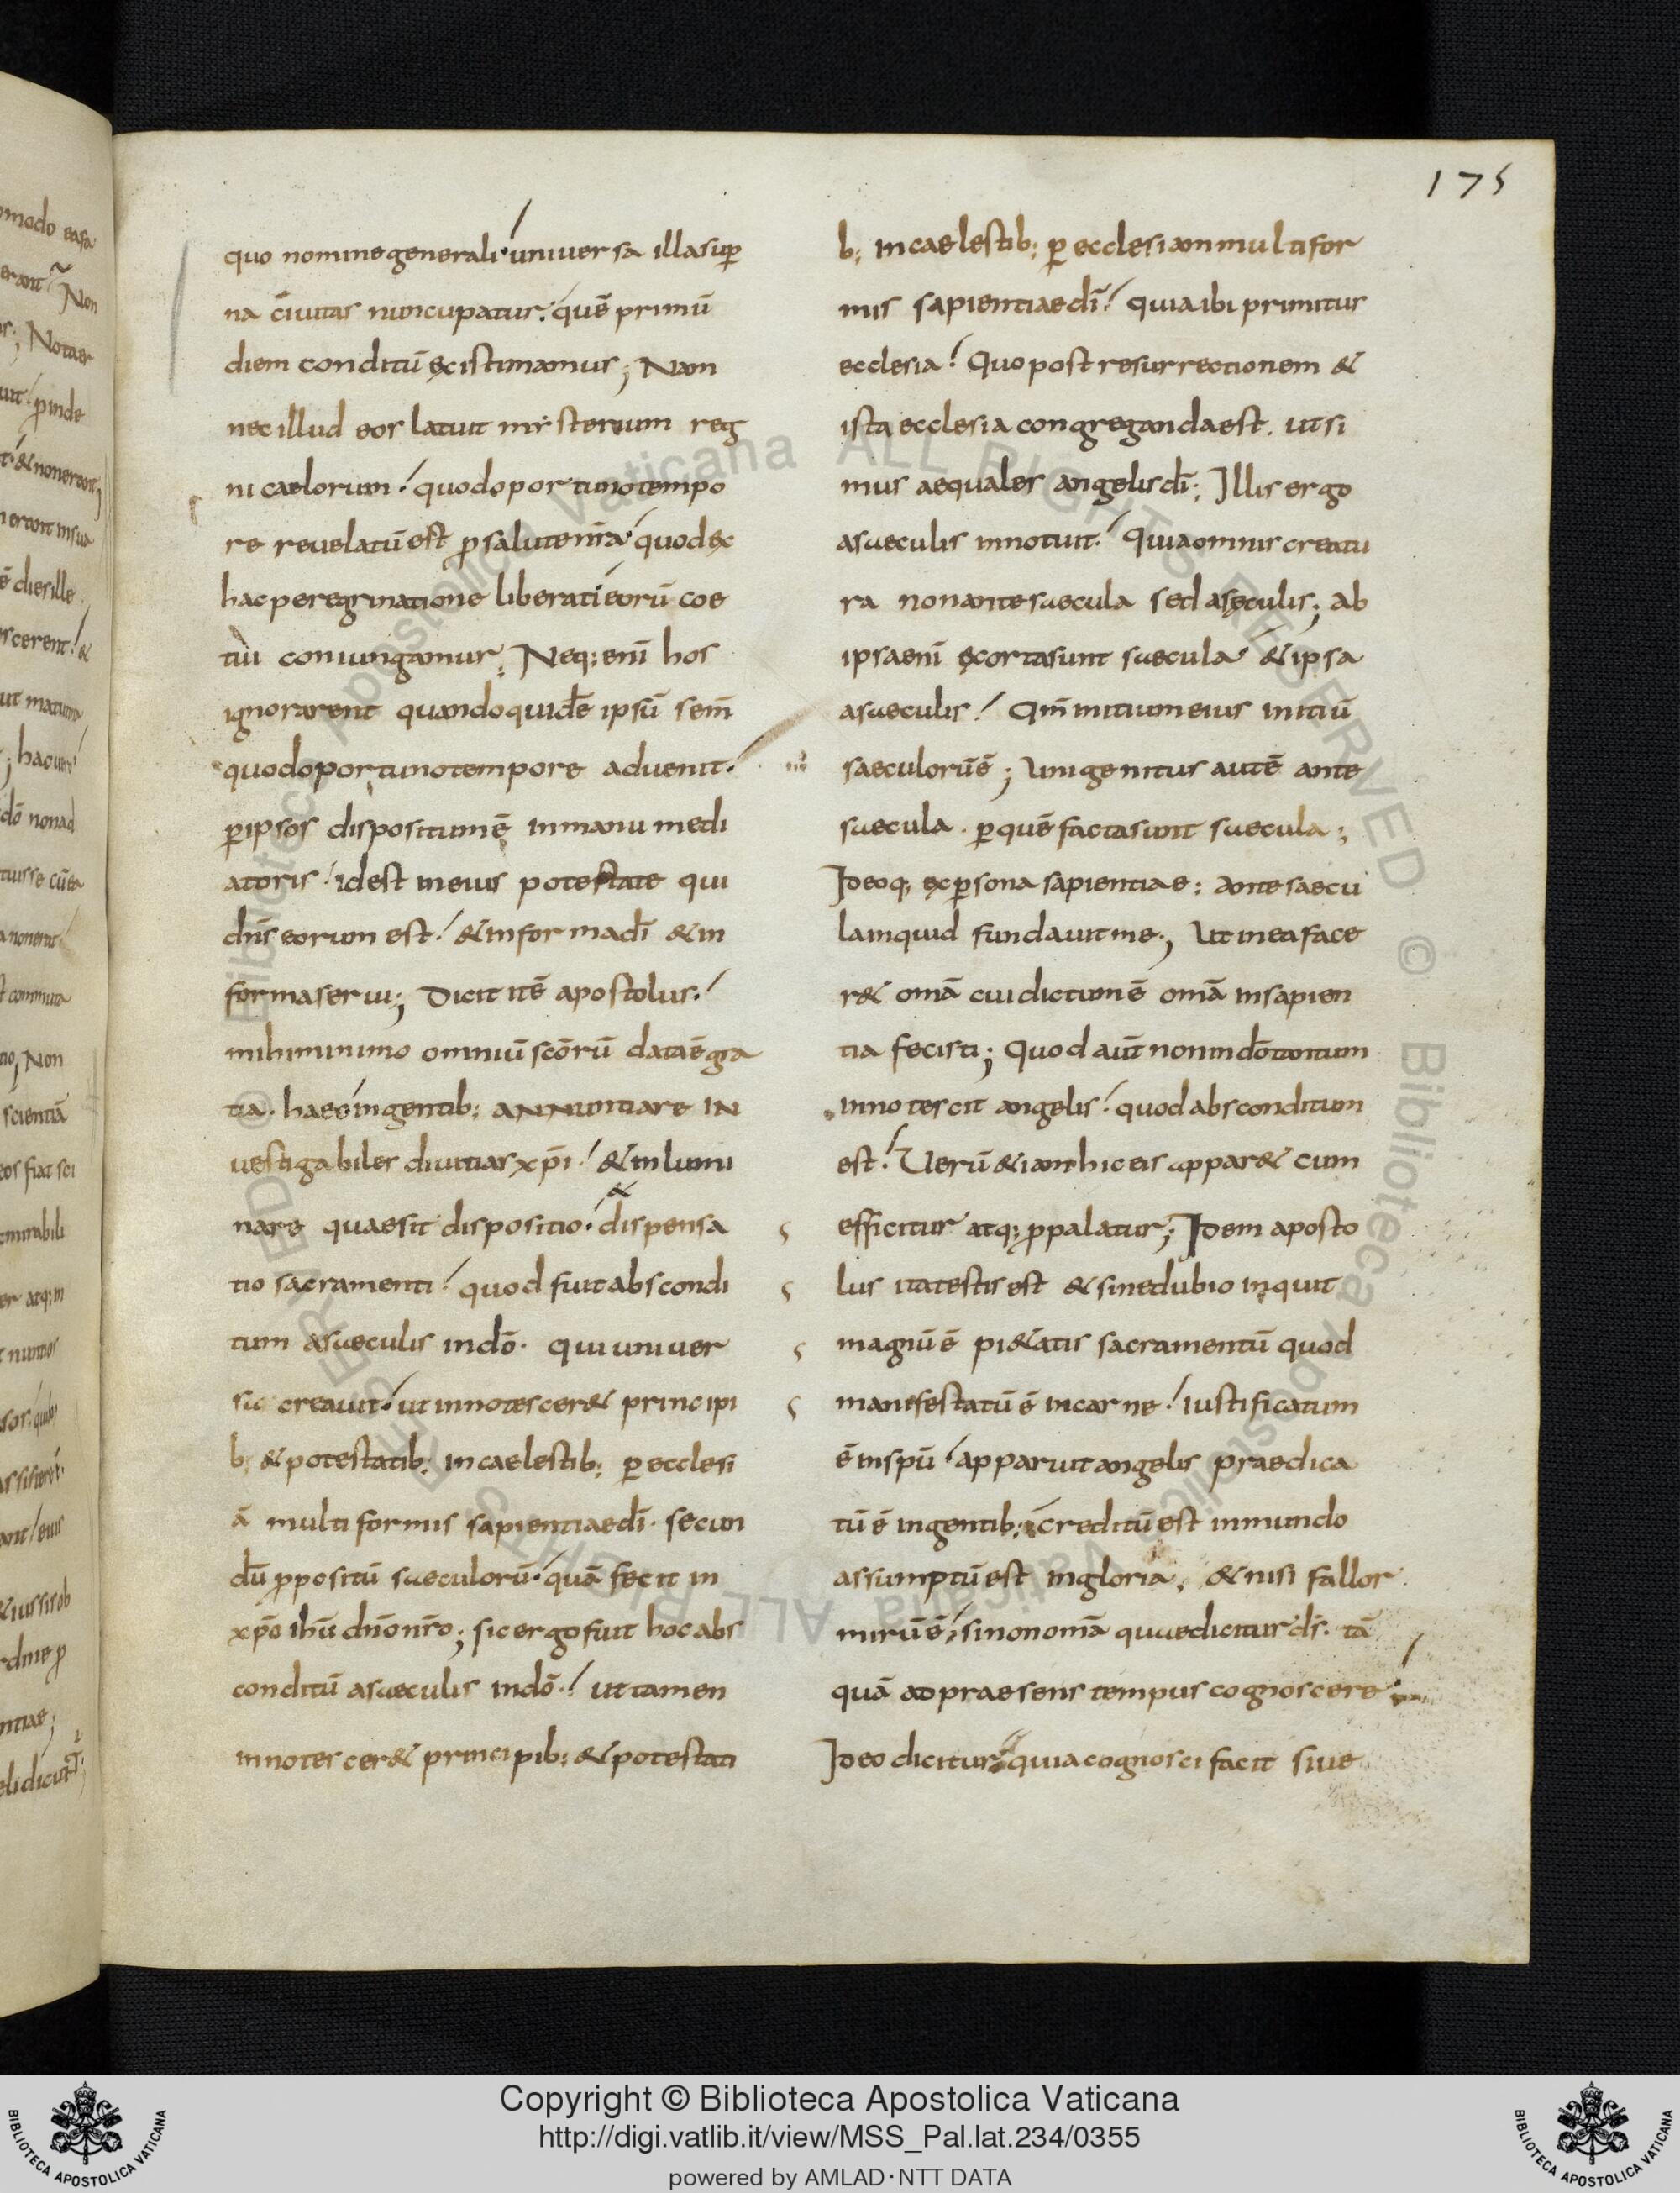 175
quo nomine generali universa illa sup̄
na civitas nuncupatur. quē primū
diem conditū existimamus; Nam
nec illud eos latuit mysterium reg
ni caelorum. quod oportuno tempo
re revelatū est p̄ salute nr̄a quod ex
hac peregrinatione liberati eorū coe
tui coniungamur; Neq; enī hos
ignorarent quandoquidē ipsū sem̄
quod oportuno tempore advenit.
p̄ ipsos dispositum ē in manu medi
atoris. id est in eius potestate qui
dn̄s eorum est. & in forma dī & in
forma servi; Dicit itē apostolus.
mihi minimo omniū scōrū data ē gra
tia. haec in gentib; annuntiare in
vestigabiles divitias xp̄i. & inlumi
nare quae sit dispositio. & dispensa
tio sacramenti. quod fuit abscondi
tum a saeculis in dō. qui univer
sa creavit. ut innotescer& principi
b; & potestatib; in caelestib; p̄ ecclesi
ā multiformis sapientiae dī. secun
dū p̄positū saeculorū. quā fecit in
xp̄o ihū dnō nr̄o; sic ergo fuit hoc abs
conditū a saeculis in dō. ut tamen
innotescer& principib; & potestati
b; in caelestib; p̄ ecclesiam multifor
mis sapientiae dī. quia ibi primitus
ecclesia. Quo post resurrectionem &
ista ecclesia congreganda est. ut si
mus aequales angelis dī; Illis ergo
a saeculis innotuit. Quia omnis creatu
ra non ante saecula sed a sęculis; ab
ipsa enī exorta sunt saecula & ipsa
a saeculis. Qm̄ initium eius initiū
saeculorū ē; Unigenitus autē ante
saecula. p̄ quē facta sunt saecula;
Ideoq; ex p̄sona sapientiae: ante saecu
la inquid fundavit me; Ut in ea face
r& om̄a cui dictum ē om̄a in sapien
tia fecisti; Quod aut̄ non in dō tantum
innotescit angelis. quod absconditum
est. Verū & iam hic eis appar& cum
efficitur atq; p̄palatur; Idem aposto
lus ita testis est & sine dubio inquit
magnū ē pi&atis sacramentū quod
manifestatū ē in carne. iustificatum
ē in spū apparuit angelis praedica
tū ē in gentib; creditū est in mundo
assumptū est in gloria. & nisi fallor
mirū ē, si non om̄a quae dicitur ds̄. tā
quā ad praesens tempus cognoscere
Ideo dicitur quia cognosci facit sive
Copyright © Biblioteca Apostolica Vaticana
http://digi.vatlib.it/view/MSS_Pal.lat.234/0355
powered by AMLAD・NTT DATA
BIBLIOTECA APOSTOLICA VATICANA
BIBLIOTECA APOSTOLICA VATICANA